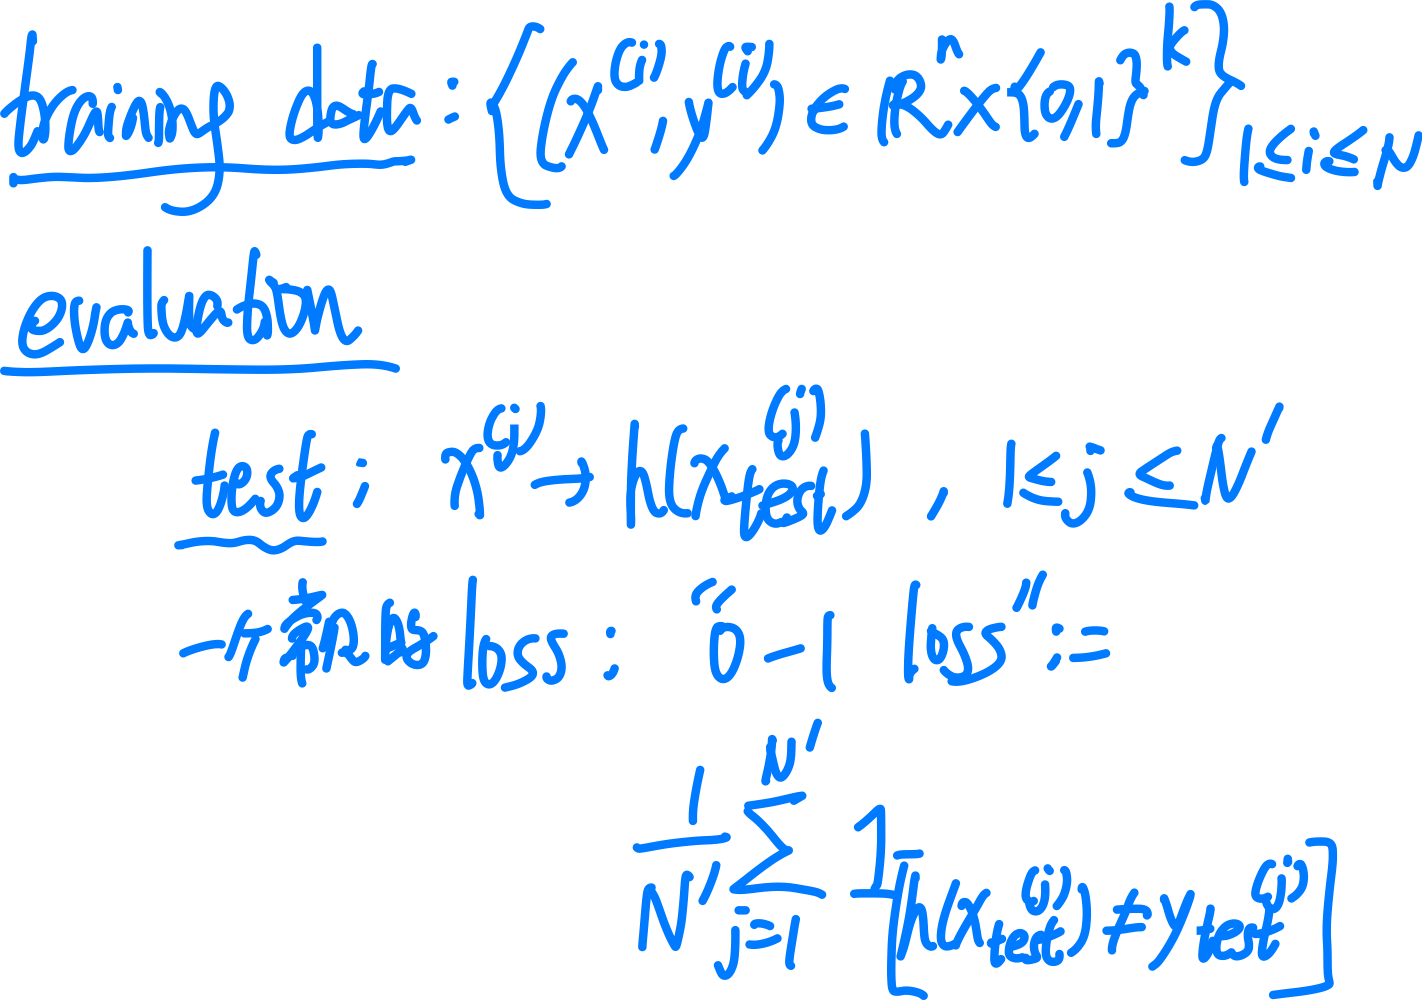 training data: {(x^(i), y^(i)) ∈ R^n × {0,1}^k}_{1≤i≤N}
evaluation
test: x^(j) → h(x_test^(j)), 1≤j≤N'
一个常见的 loss: "0-1 loss" :=
1/N' ∑_{j=1}^{N'} 1_[h(x_test^(j)) ≠ y_test^(j)]